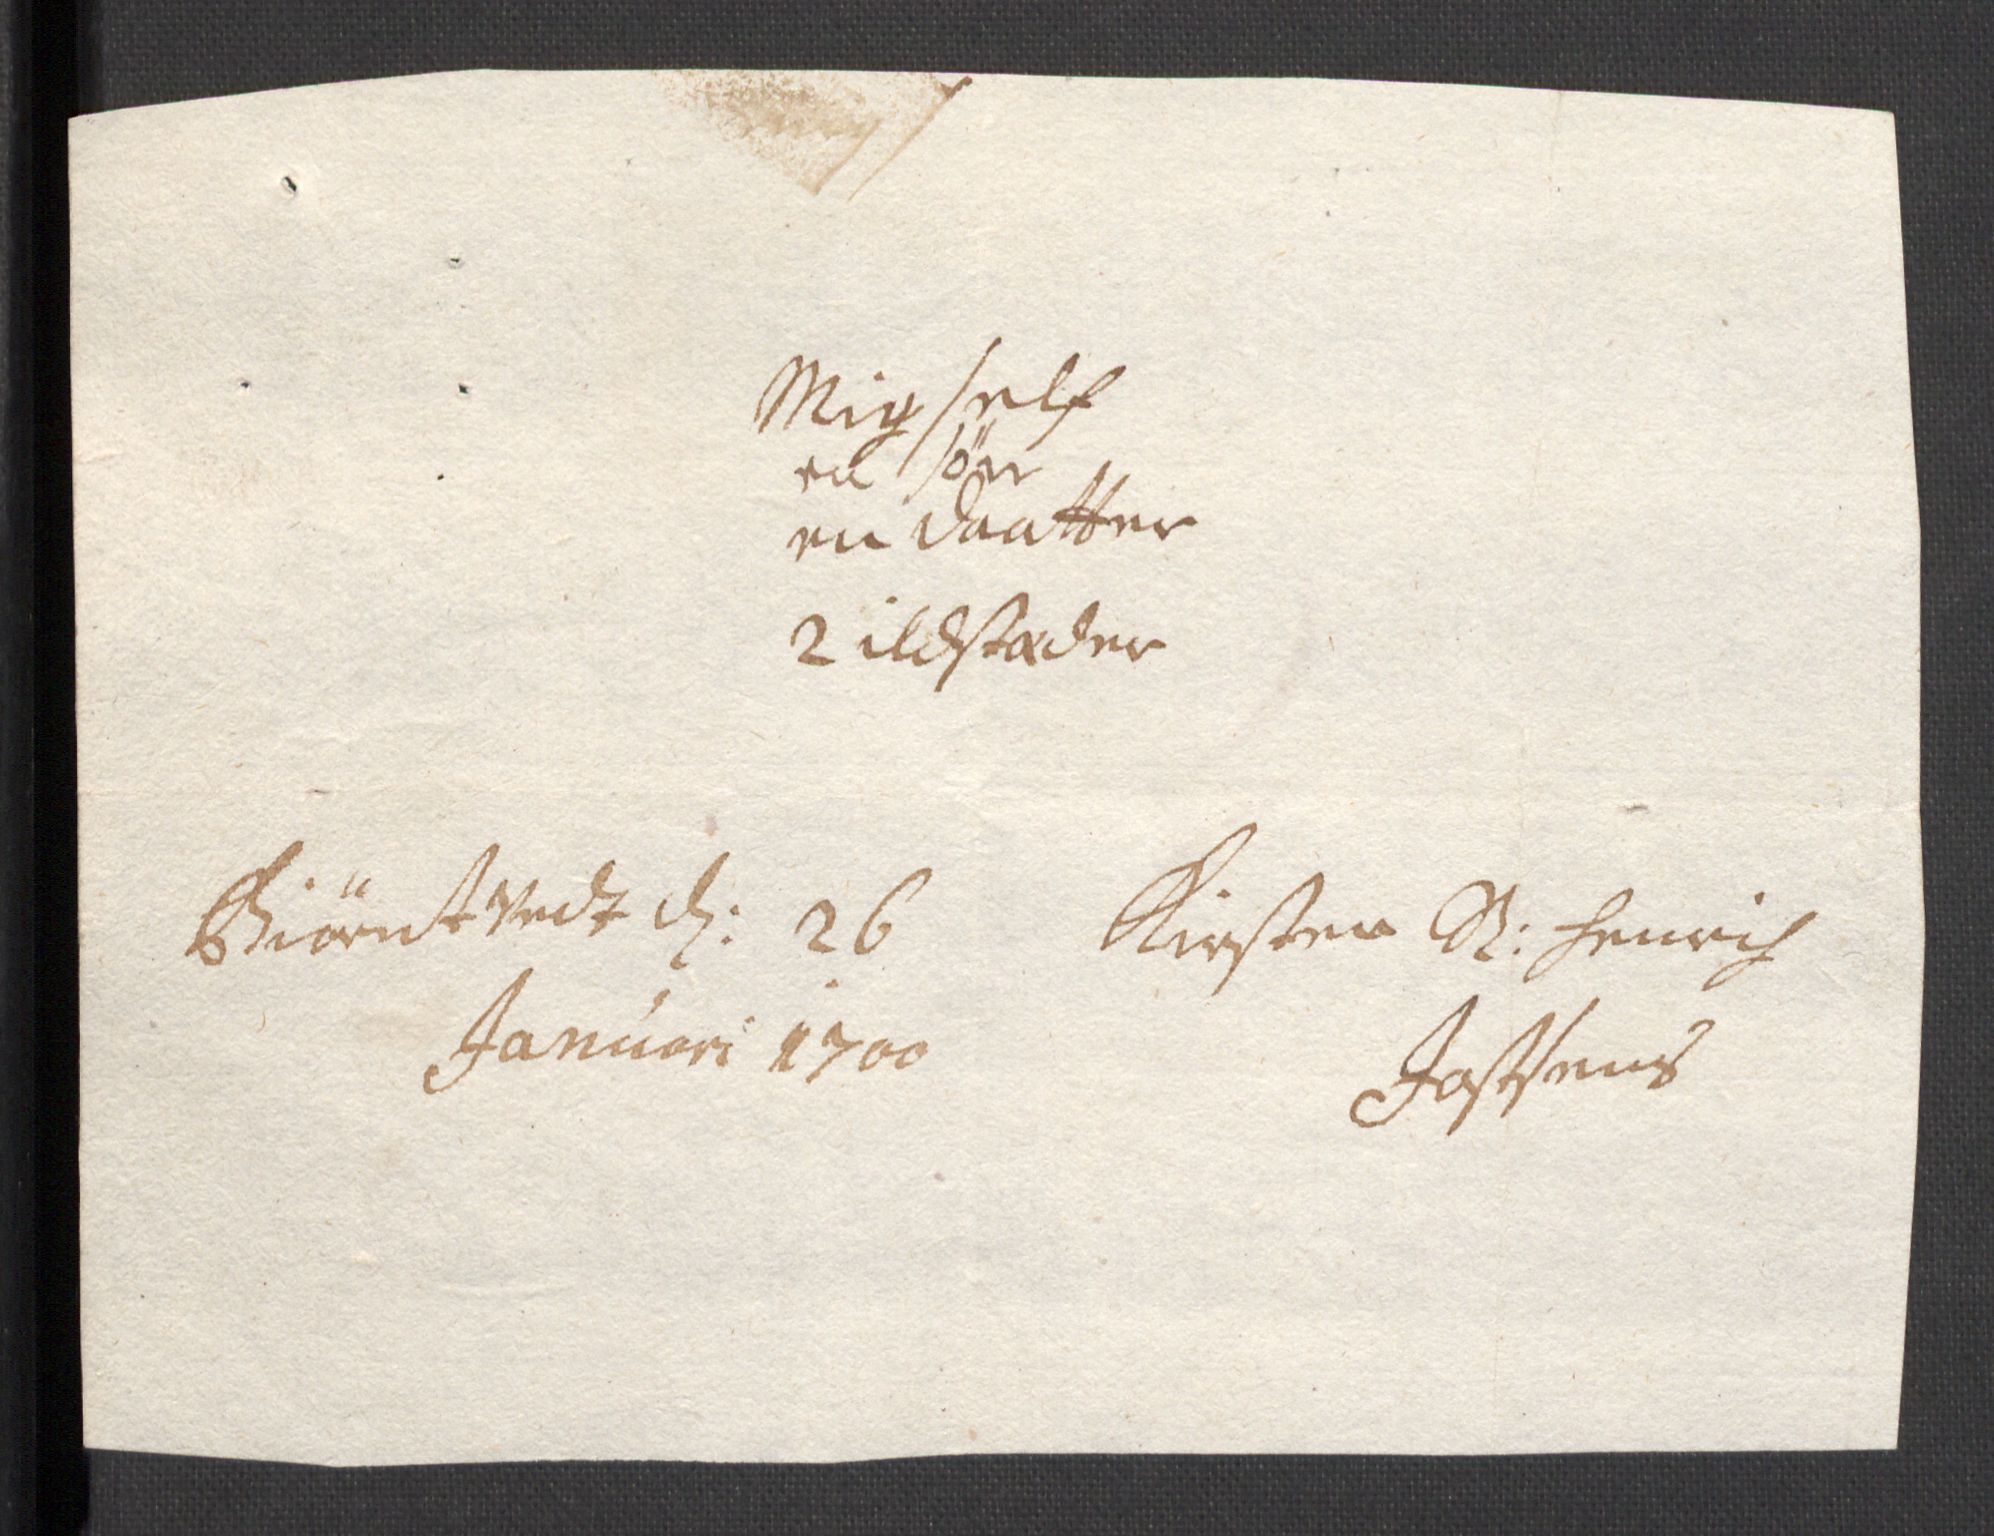 Mig self
en sön
en daatter
2 ildstæder
Giörntvedt d: 26
Januari 1700
Kirsten S: Henrich
Jostsens